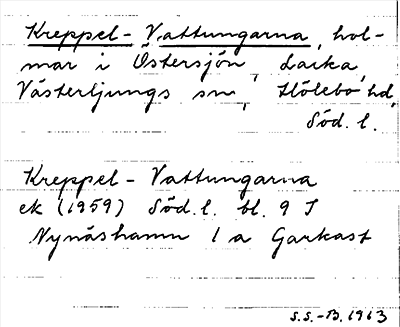 Kreppel-Vattungarna, hol-
mar i Östersjön, Lacka,
Västerljungs sn, Hölebo hd,
Söd. l.
Kreppel-Vattungarna
ek (1959) Söd. l. bl. 9 I
Nynäshamn 1 a Garkast
S.S.-B. 1963